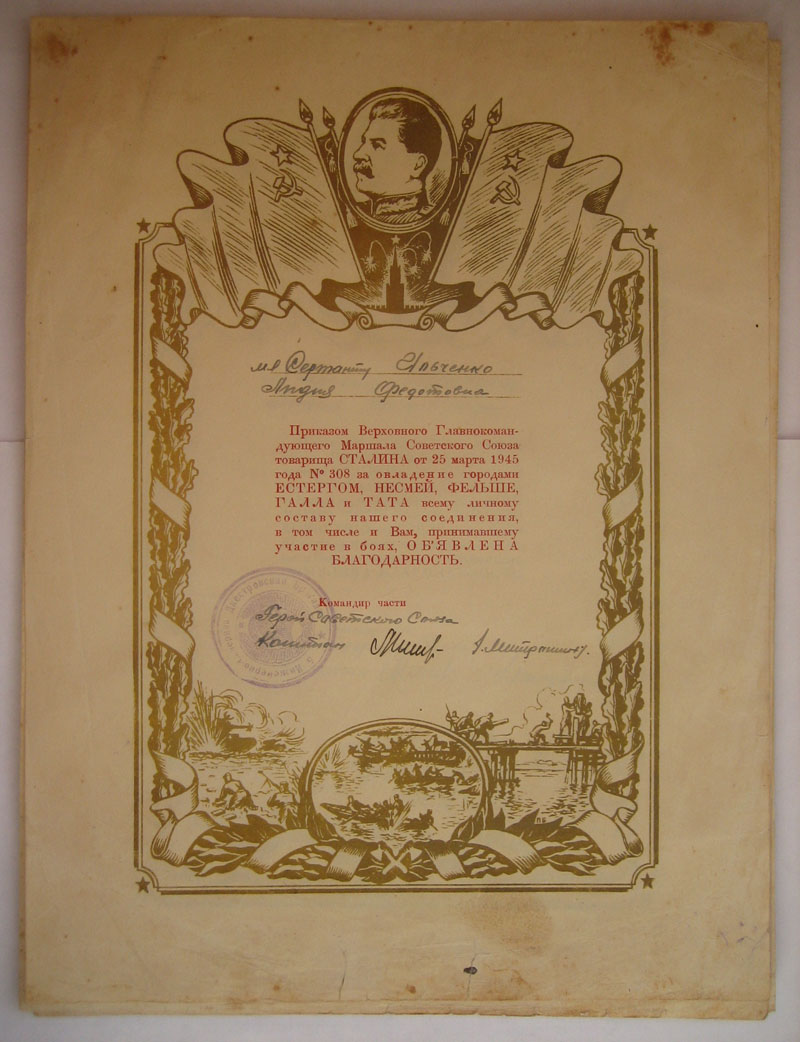 мл Сержанту Ильченко
Лидия Федотовна
Приказом Верховного Главнокоман-
дующего Маршала Советского Союза
товарища СТАЛИНА от 25 марта 1945
года № 308 за овладение городами
ЕСТЕРГОМ, НЕСМЕЙ, ФЕЛЬШЕ,
ГАЛЛА и ТАТА всему личному
составу нашего соединения,
в том числе и Вам, принимавшему
участие в боях, ОБ'ЯВЛЕНА
БЛАГОДАРНОСТЬ.
Командир части
Герой Советского Союза
Капитан